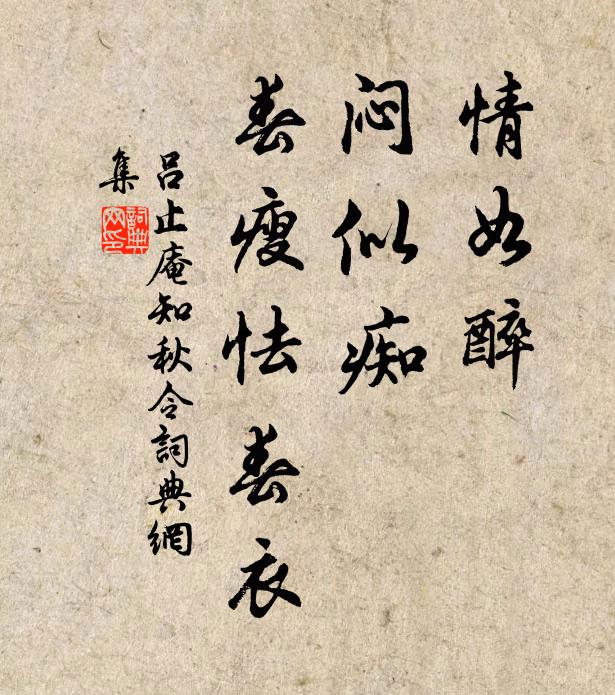 情如醉
闷似痴
春瘦怯春衣
吕止庵知秋令詞典網
集
詞典
网印